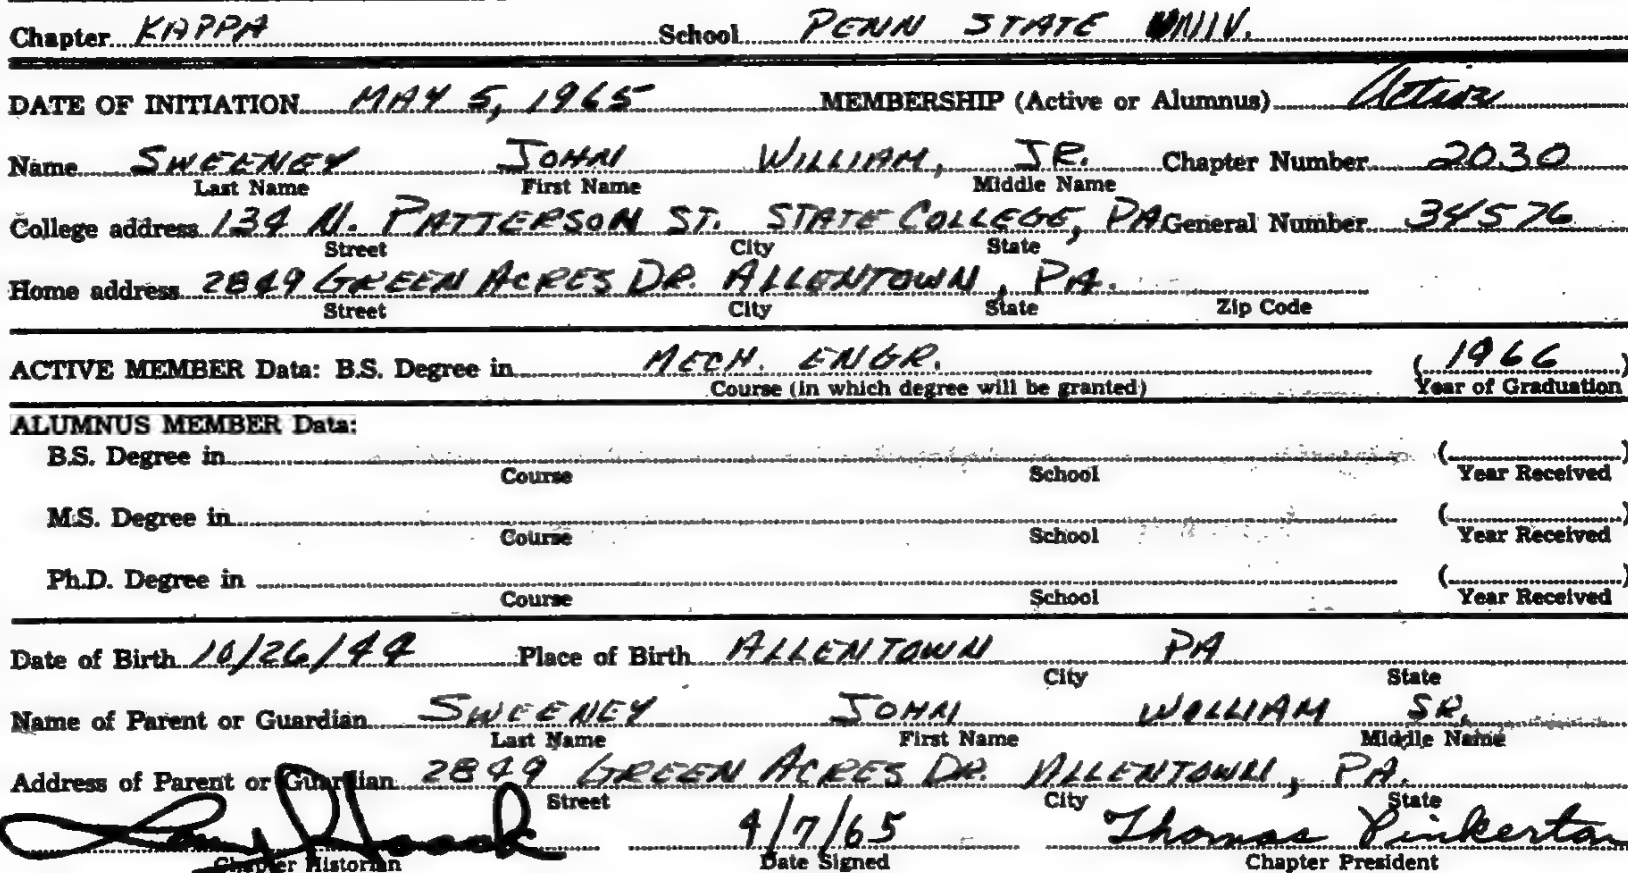 Chapter KAPPA School PENN STATE UNIV.
DATE OF INITIATION MAY 5, 1965 MEMBERSHIP (Active or Alumnus) Active
Name SWEENEY JOHN WILLIAM, JR. Chapter Number 2030
Last Name First Name Middle Name
College address 134 N. PATTERSON ST. STATE COLLEGE, PA General Number 34576
Street City State
Home address 2849 GREEN ACRES DR. ALLENTOWN, PA.
Street City State Zip Code
ACTIVE MEMBER Data: B.S. Degree in MECH. ENGR. (1966)
Course (in which degree will be granted) Year of Graduation
ALUMNUS MEMBER Data:
B.S. Degree in ( )
Course School Year Received
M.S. Degree in ( )
Course School Year Received
Ph.D. Degree in ( )
Course School Year Received
Date of Birth 10/26/44 Place of Birth ALLENTOWN PA
City State
Name of Parent or Guardian SWEENEY JOHN WILLIAM SR.
Last Name First Name Middle Name
Address of Parent or Guardian 2849 GREEN ACRES DR. ALLENTOWN, PA.
Street City State
4/7/65 Thomas Pinkerton
Chapter Historian Date Signed Chapter President